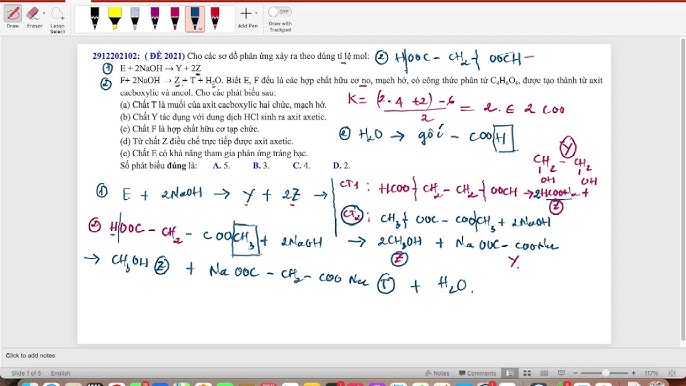 Draw
Eraser
Lasso Select
Add Pen
Draw with Trackpad
2912202102: ( ĐỀ 2021) Cho các sơ đồ phản ứng xảy ra theo đúng tỉ lệ mol:
② HOOC - CH2 OOCH
① E + 2NaOH → Y + 2Z
② F+ 2NaOH → Z + T + H2O. Biết E, F đều là các hợp chất hữu cơ no, mạch hở, có công thức phân tử C4H6O4, được tạo thành từ axit
cacboxylic và ancol. Cho các phát biểu sau:
(a) Chất T là muối của axit cacboxylic hai chức, mạch hở.
K = (2.4+2)-6 / 2 = 2. ∈ 2 COO
(b) Chất Y tác dụng với dung dịch HCl sinh ra axit axetic.
(c) Chất F là hợp chất hữu cơ tạp chức.
② H2O → gốc - COOH
(d) Từ chất Z điều chế trực tiếp được axit axetic.
(e) Chất E có khả năng tham gia phản ứng tráng bạc.
Y
CH2 - CH2
OH OH
Số phát biểu đúng là: A. 5. B. 3. C. 4. D. 2.
① E + 2NaOH → Y + 2Z →
CT1: HCOO CH2 - CH2 OOCH → 2HCOONa +
Z
CT2: CH3 OOC - COO CH3 + 2NaOH
② HOOC - CH2 - COO CH3 + 2NaOH
→ 2CH3OH + NaOOC - COONa
Z Y
→ CH3OH Z + NaOOC - CH2 - COONa T + H2O.
Click to add notes
Slide 1 of 5
English
Notes
Comments
117%